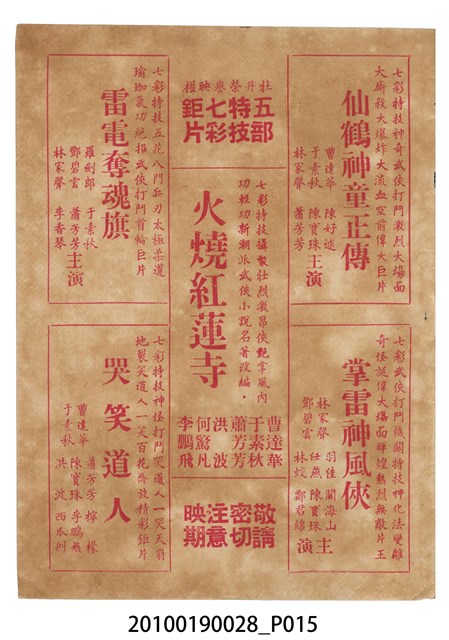 牡丹榮譽映權
五部
特技
七彩
鉅片
七彩特技神奇武俠打鬥激烈大場面
大廝殺大爆炸大流血空前偉大巨片
仙鶴神童正傳
曹達華 陳好逑
于素秋 陳寶珠
林家聲 蕭芳芳
主演
七彩武俠打鬥機關特技神化法變離
奇怪誕偉大場面輝煌熱烈無敵片王
掌雷神風俠
林家聲 羽佳 關海山
鄧碧雲 任燕 陳寶珠
林蛟 鄭君綿
主演
七彩特技攝製壯烈激昂俠艷掌風內
功輕功新潮派武俠小說名著改編。
火燒紅蓮寺
曹達華
于素秋
蕭芳芳
洪波
何驚凡
李鵬飛
敬請
密切
注意
映期
七彩特技五花八門兵刃太極柔道
瑜珈氣功絕招武俠打鬥首輪巨片
雷電奪魂旗
羅劍郎 于素秋
鄧碧雲 蕭芳芳
林家聲 李香琴
主演
七彩特技神怪打鬥笑道人一笑天崩
地裂笑道人一笑百花齊放精彩鉅片
哭笑道人
蕭芳芳 檸檬
曹達華 陳寶珠 李鵬飛
于素秋 洪波 西瓜刨
20100190028_P015